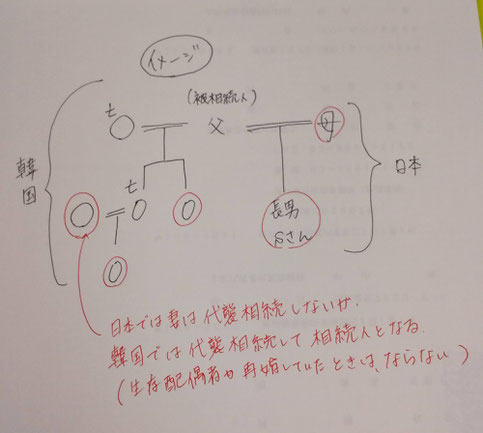 イメージ
(被相続人)
亡
父
母
韓国
日本
亡
長男
Sさん
日本では妻は代襲相続しないが、
韓国では代襲相続して相続人となる.
(生存配偶者が再婚していたときは、ならない)